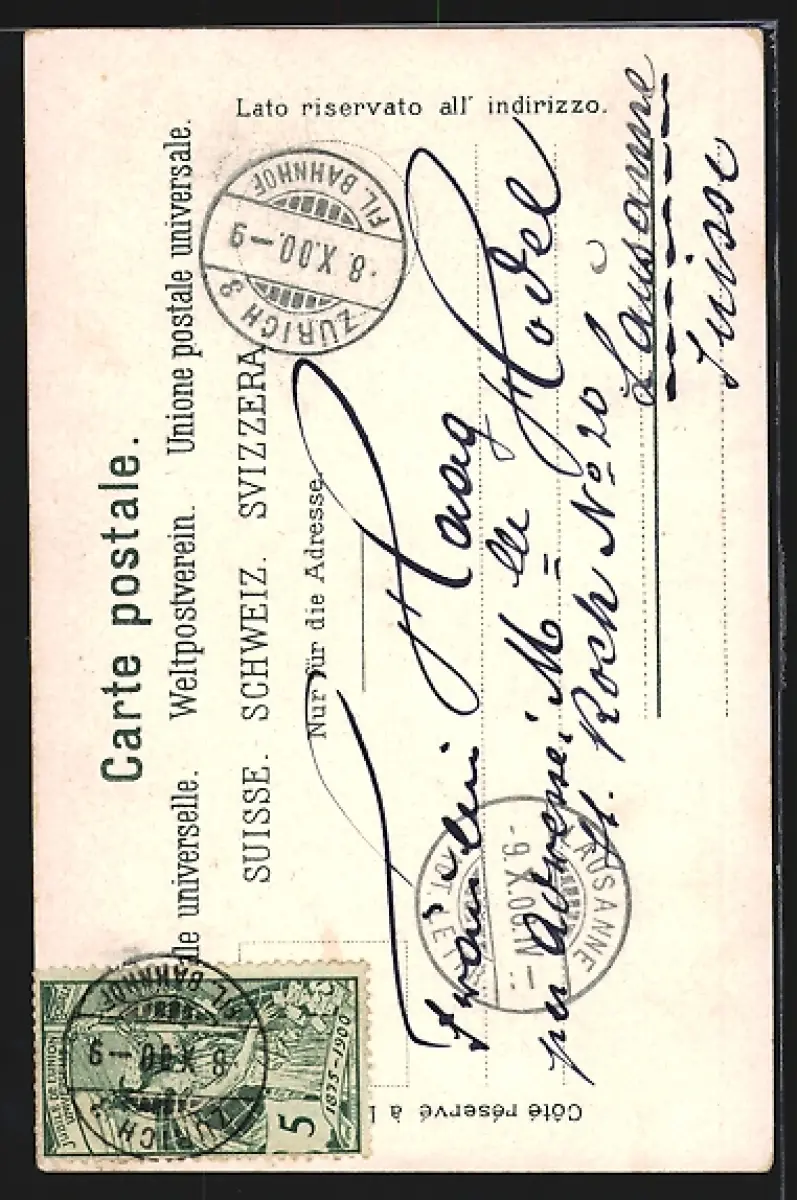 Carte postale.
lle universelle. Weltpostverein. Unione postale universale.
SUISSE. SCHWEIZ. SVIZZERA
Nur für die Adresse.
Lato riservato all' indirizzo.
Côté réservé à l
Fräulein Haag Hodel
per Adresse: Mlle
St. Roch No 20
Lausanne
Suisse
ZÜRICH 3
8.X.00.–9
FIL. BAHNHOF
ZÜRICH 3
8.X.00–9
FIL. BAHNHOF
LAUSANNE
-9.X.00.VII–
JUBILÉ DE L'UNION
5
1875–1900